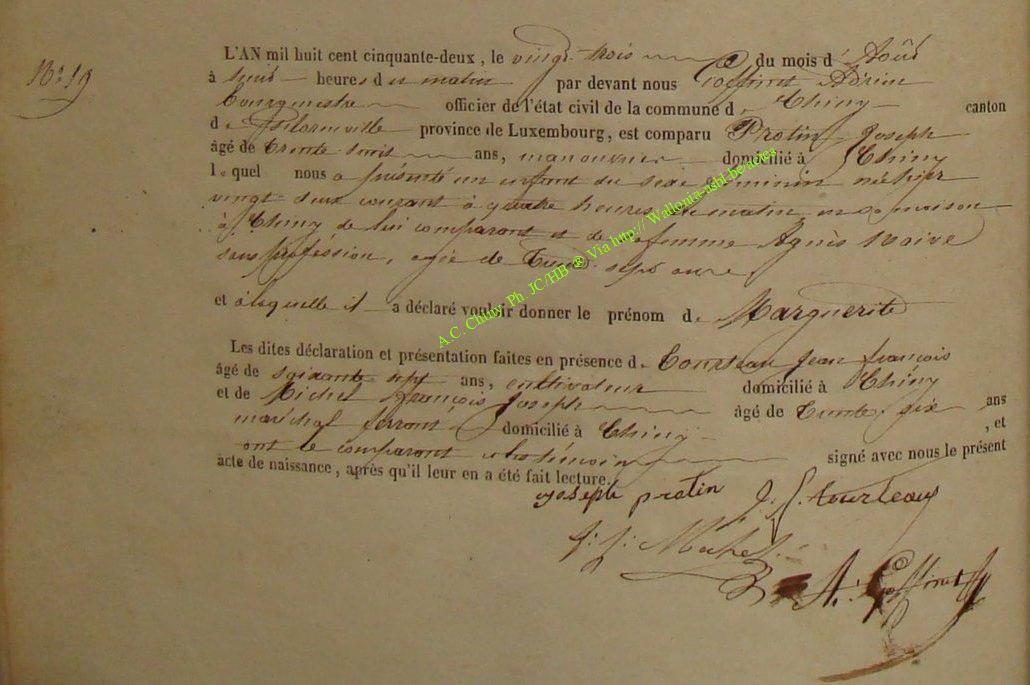 N° 19
L'AN mil huit cent cinquante-deux, le vingt trois du mois d'Août
à huit heures du matin par devant nous Goffinet Adrien
Bourgmestre officier de l'état civil de la commune de Chiny canton
de Florenville province de Luxembourg, est comparu Protin Joseph
âgé de trente huit ans, manouvrier domicilié à Chiny
lequel nous a présenté un enfant du sexe féminin né hier
vingt deux courant à quatre heures du matin en sa maison
à Chiny de lui comparant et de sa femme Agnès Noive
sans profession, agée de trente sept ans,
et à laquelle il a déclaré vouloir donner le prénom de Marguerite
Les dites déclaration et présentation faites en présence de Tourteau Jean françois
âgé de soixante sept ans, cultivateur domicilié à Chiny
et de Michel françois Joseph âgé de trente six ans
maréchal ferrant domicilié à Chiny , et
ont le comparant et les témoins signé avec nous le présent
acte de naissance, après qu'il leur en a été fait lecture.
Joseph protin J. f. tourteau
f. j. Michel
A. Goffinet
A.C. Chiny Ph. JC/HB ® Via http://Wallonia-asbl.be/actes